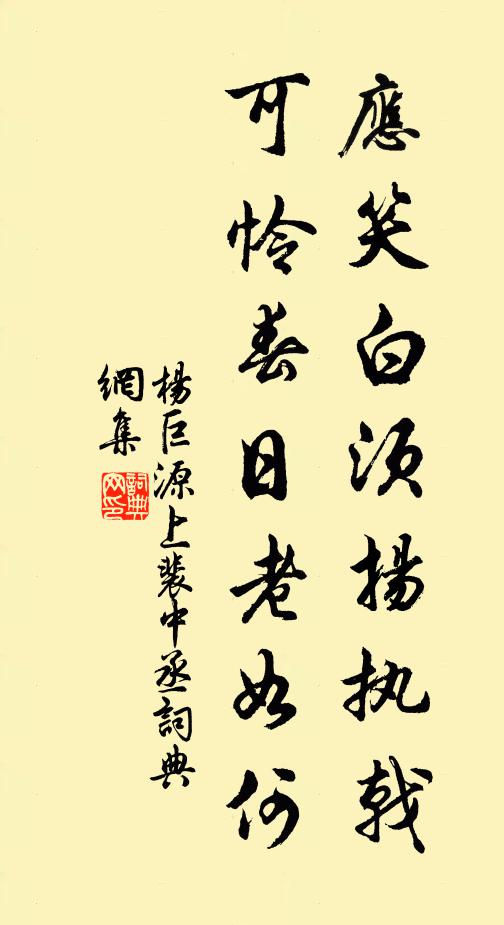 應笑白須揚执戟
可怜春日老如何
楊巨源上裴中丞詞典
網集
詞典
网印